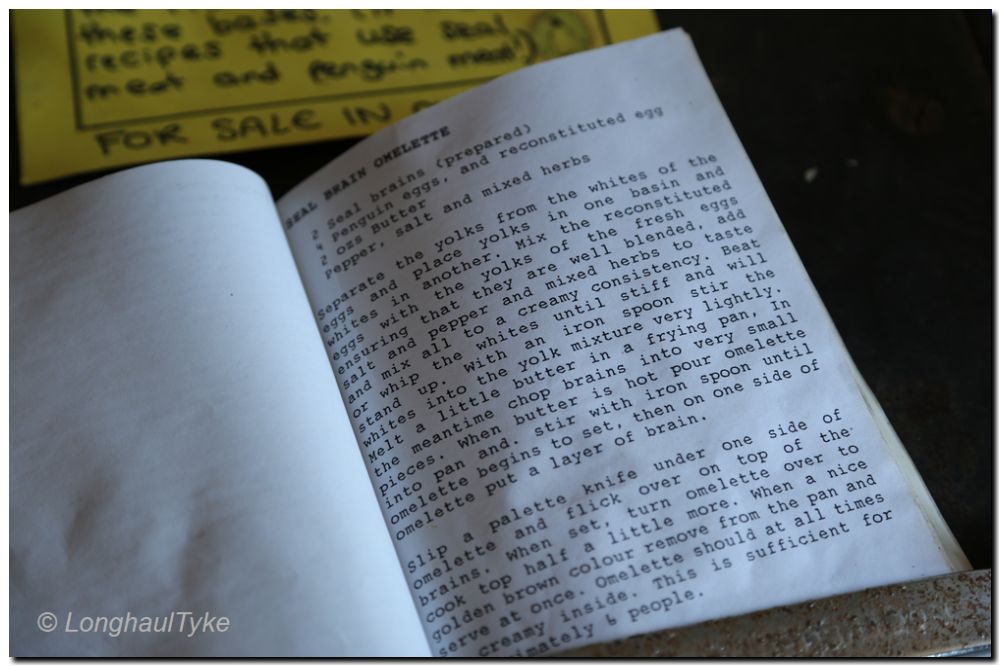 these bases.
recipes that use seal
meat and penguin meat!)
FOR SALE IN
SEAL BRAIN OMELETTE
2 Seal brains (prepared)
4 Penguin eggs, and reconstituted egg
2 ozs Butter
Pepper, salt and mixed herbs
Separate the yolks from the whites of the
eggs and place yolks in one basin and
whites in another. Mix the reconstituted
eggs with the yolks of the fresh eggs
ensuring that they are well blended, add
salt and pepper and mixed herbs to taste
and mix all to a creamy consistency. Beat
or whip the whites until stiff and will
stand up. With an iron spoon stir the
whites into the yolk mixture very lightly.
Melt a little butter in a frying pan, In
the meantime chop brains into very small
pieces. When butter is hot pour omelette
into pan and. stir with iron spoon until
omelette begins to set, then on one side of
omelette put a layer of brain.
Slip a palette knife under one side of
omelette and flick over on top of the
brains. When set, turn omelette over to
cook top half a little more. When a nice
golden brown colour remove from the pan and
serve at once. Omelette should at all times
creamy inside. This is sufficient for
imately 6 people.
© LonghaulTyke